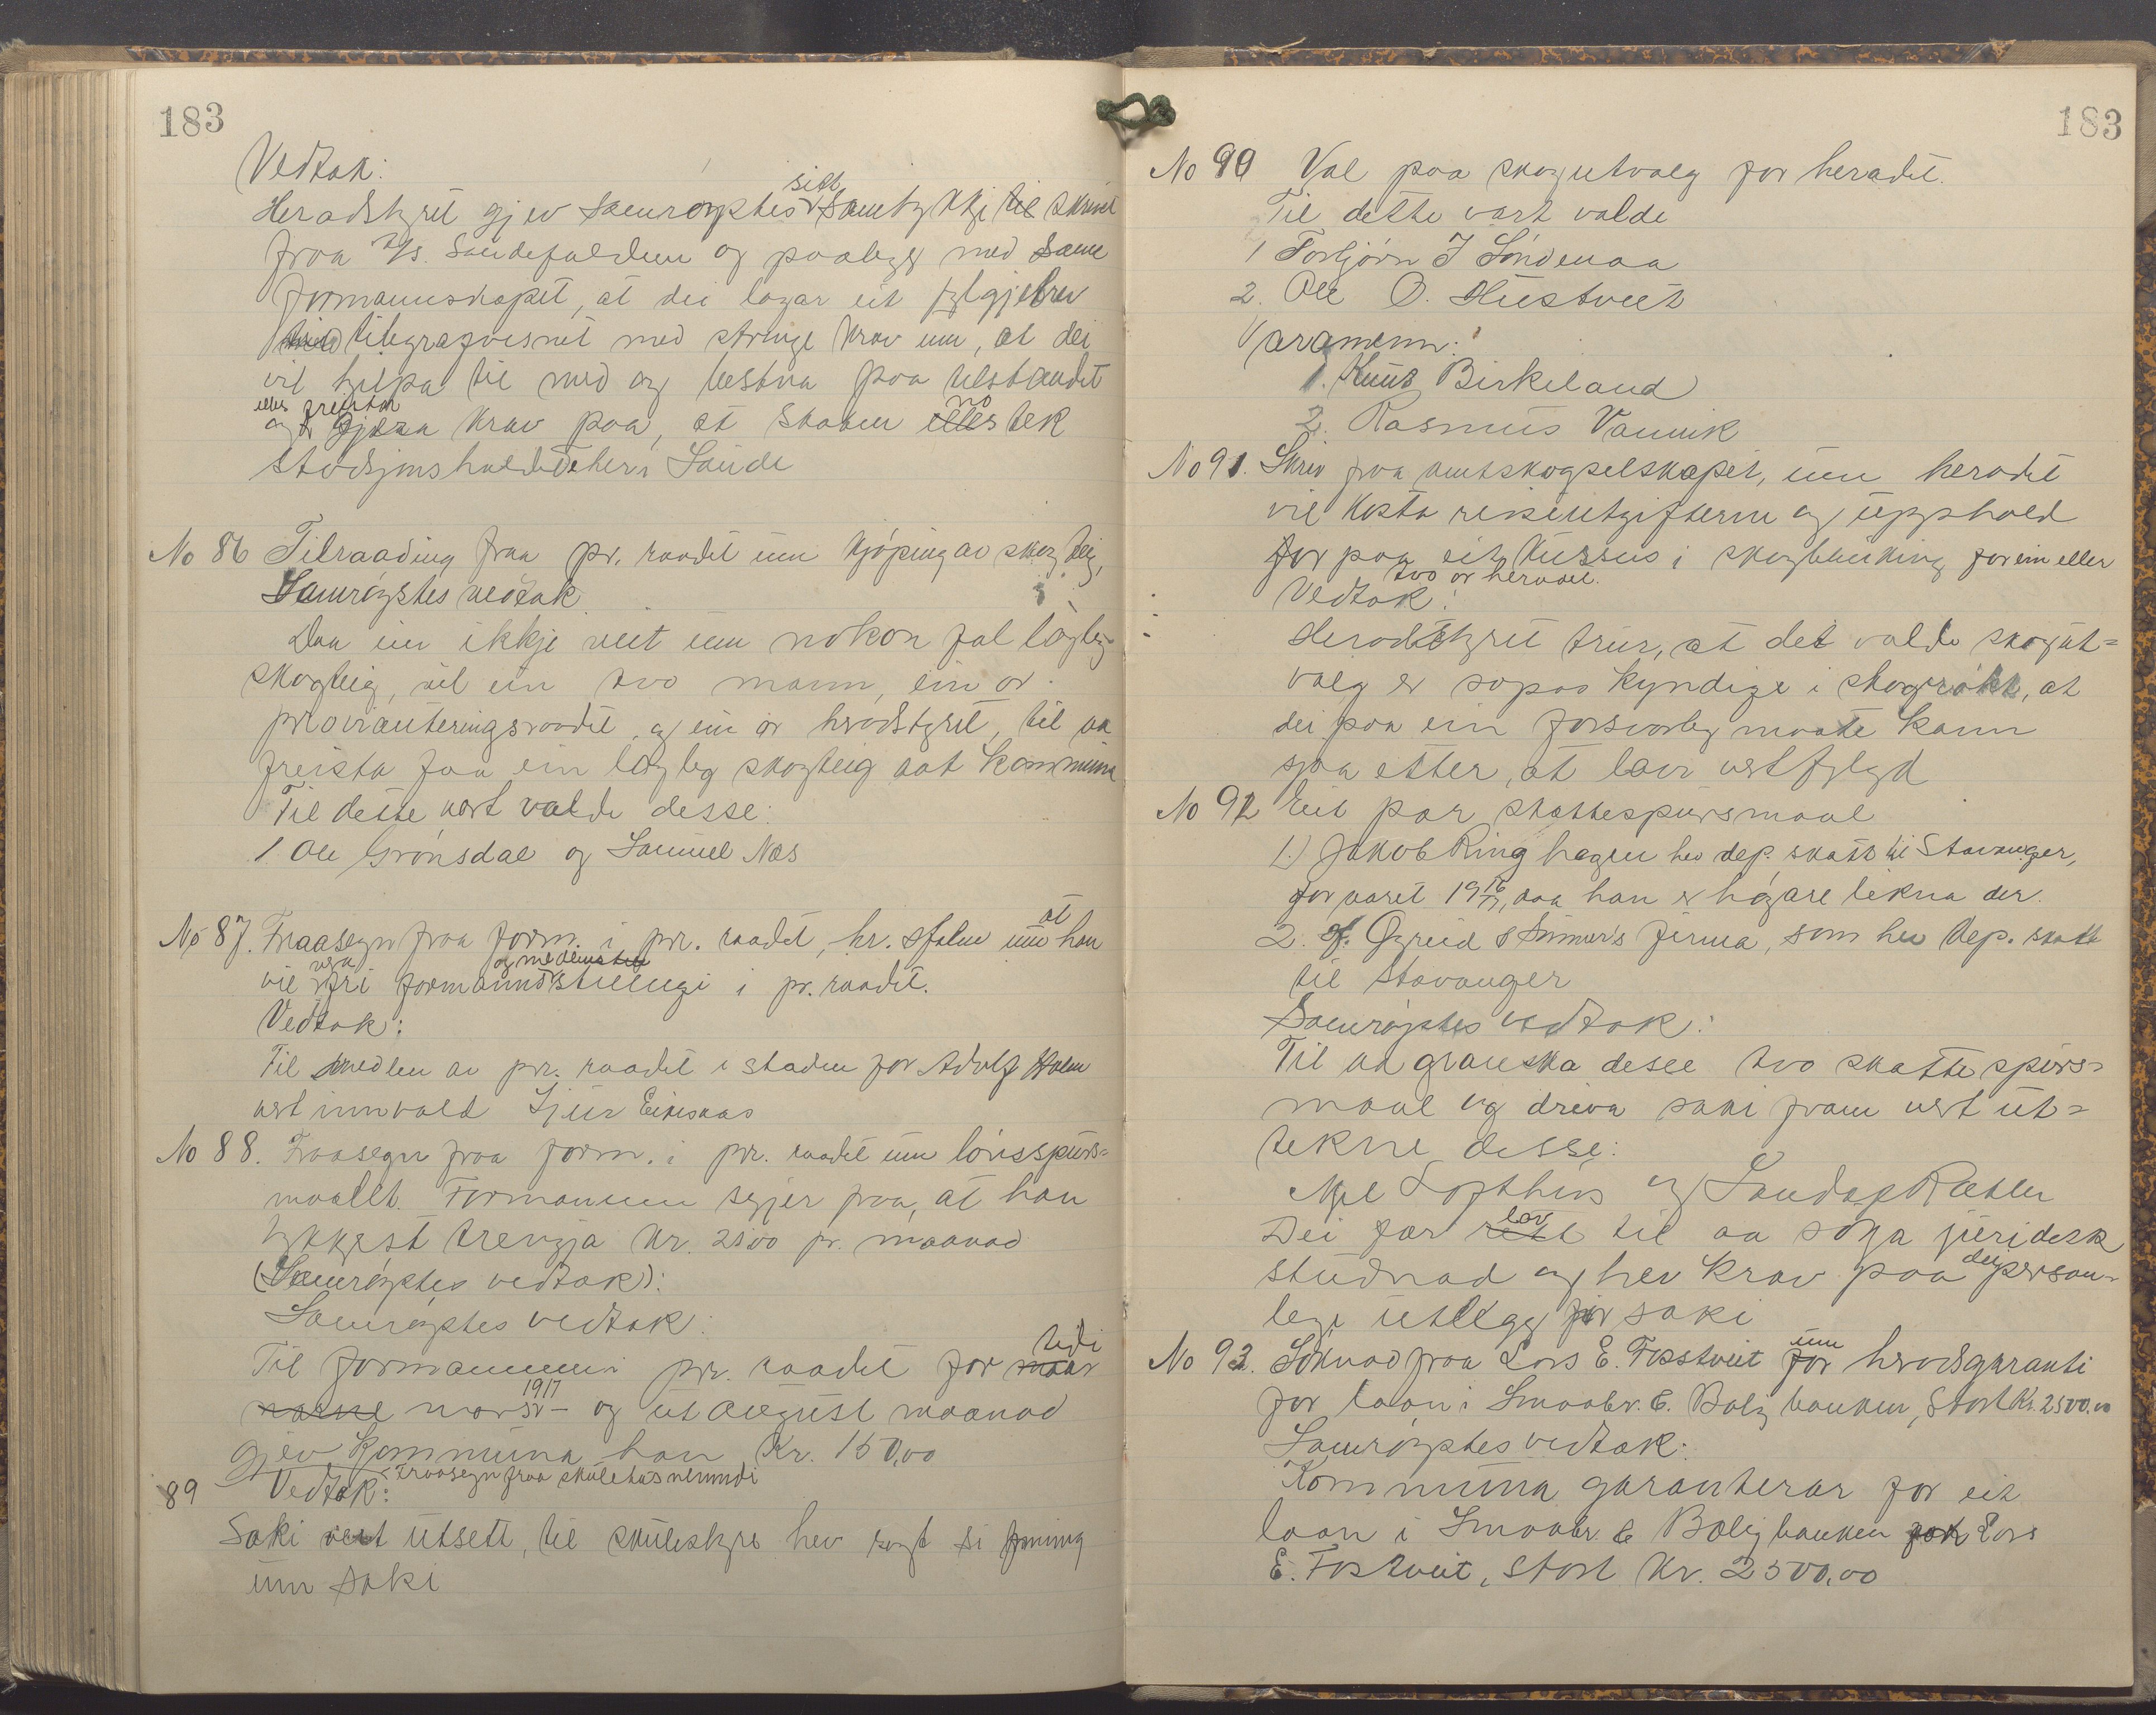 183
Vedtak:
Heradstyret gjev samrøystes sitt samtykkje til skrivet
fraa A/s. Saudefaldene og paalegg med same
formannskapet, at dei lagar eit fylgjebrev
til telegrafvesnet med strenge krav um, at dei
vil hjelpa til med og betra paa tilstandet
eller freistar
og gjera krav paa, at Staten no tek
stødsjonshaldet her i Saude
No 86 Tilraading fraa pr. raadet um kjøping av skogteig,
Samrøystes vedtak
Daa ein ikkje veit um nokon fal lagleg
skogteig, vel ein two mann, ein or
provianteringsraadet, og ein or hradstyret, til aa
freista faa ein lagleg skogteig aat kommuna
Til dette vert valde desse:
1. Ole Grønsdal og Samuel Næs
No 87. Fraasegn fraa form. i pr. raadet, hr. Holm um at han
vil vera fri formannsstillingi og medlemstill i pr. raadet.
Vedtak:
Til medlem av pr. raadet i staden for Adolf Holm
vert innvald Sjur Eikeskaas
No 88. Fraasegn fraa form. i pr. raadet um lønsspurs=
maalet. Formannen segjer fraa, at han
tykkjest trengja kr. 2500 pr. maanad
(Samrøystes vedtak):
Samrøystes vedtak:
Til formannen i pr. raadet for tidi
mars 1917 – og ut august maanad
gjev kommuna han kr. 150,00
89 Vedtak: Fraasegn fraa skulehusnemndi
Saki vert utsett, til skulestyre hev sagt si meining
um saki
183
No 90 Val paa skogutvalg for heradet.
Til dette vart valde
1 Torbjørn J Søndenaa
2. Ole O. Hustveit
Varamenn:
1. Knut Birkeland
2. Rasmus Vanvik
No 91. Skriv fraa amtskogselskapet, um heradet
vil kosta reiseutgifterne og upphald
for paa eit kursus i skogplanking for ein eller
two or heradet.
Vedtak:
Heradstyret trur, at det valde skogut=
valg er sopas kyndige i skogrøkt, at
dei paa ein forsvarleg maate kann
sjaa etter, at lovi vert fylgd
No 92 Eit par skattespursmaal
1.) Jakob Ringhagen hev dep. skatt til Stavanger,
for aaret 1916/17, daa han er høgare likna der.
2. Gjreid & Sunner's firma, som hev dep. skatt
til Stavanger
Samrøystes vedtak:
Til aa granska desse two skattespurs=
maal og driva saki fram vert ut=
tekne desse:
Mel Lofthus og Landag Rætler
Dei fær lov til aa søkja juridisk
studnad og hev krav paa dei person=
lege utlegg for saki
No 93. Søknad fraa Lars E. Fosstveit um hradsgaranti
for laan i Smaabr. & Boligbanken, stort kr. 2500.00
Samrøystes vedtak:
Kommuna garanterar for eit
laan i Smaabr. & Boligbanken for Lars
E. Fosstveit, stort kr. 2500,00